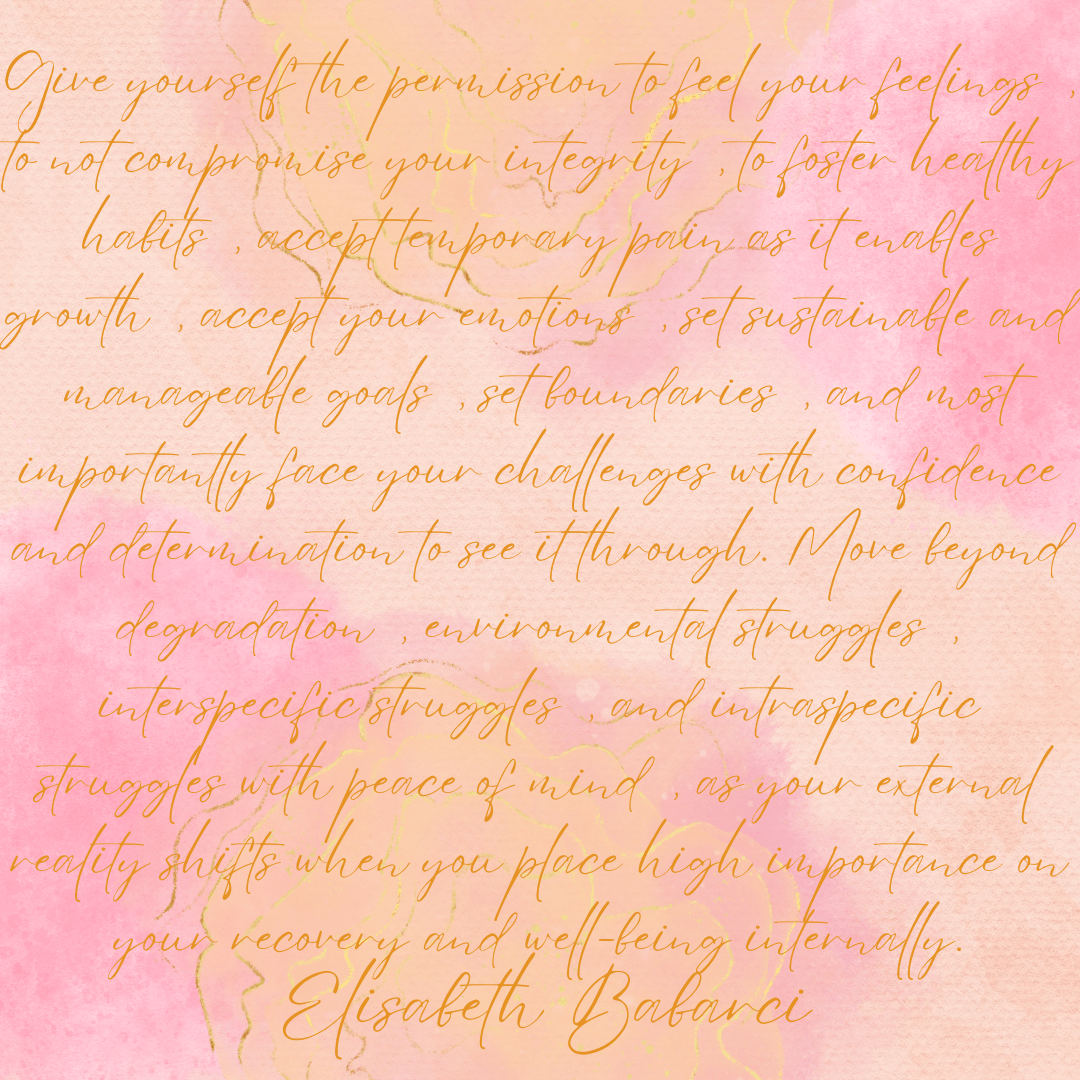 Give yourself the permission to feel your feelings ,
to not compromise your integrity , to foster healthy
habits , accept temporary pain as it enables
growth , accept your emotions , set sustainable and
manageable goals , set boundaries , and most
importantly face your challenges with confidence
and determination to see it through. Move beyond
degradation , environmental struggles ,
interspecific struggles , and intraspecific
struggles with peace of mind , as your external
reality shifts when you place high importance on
your recovery and well-being internally.
Elisabeth Babarci